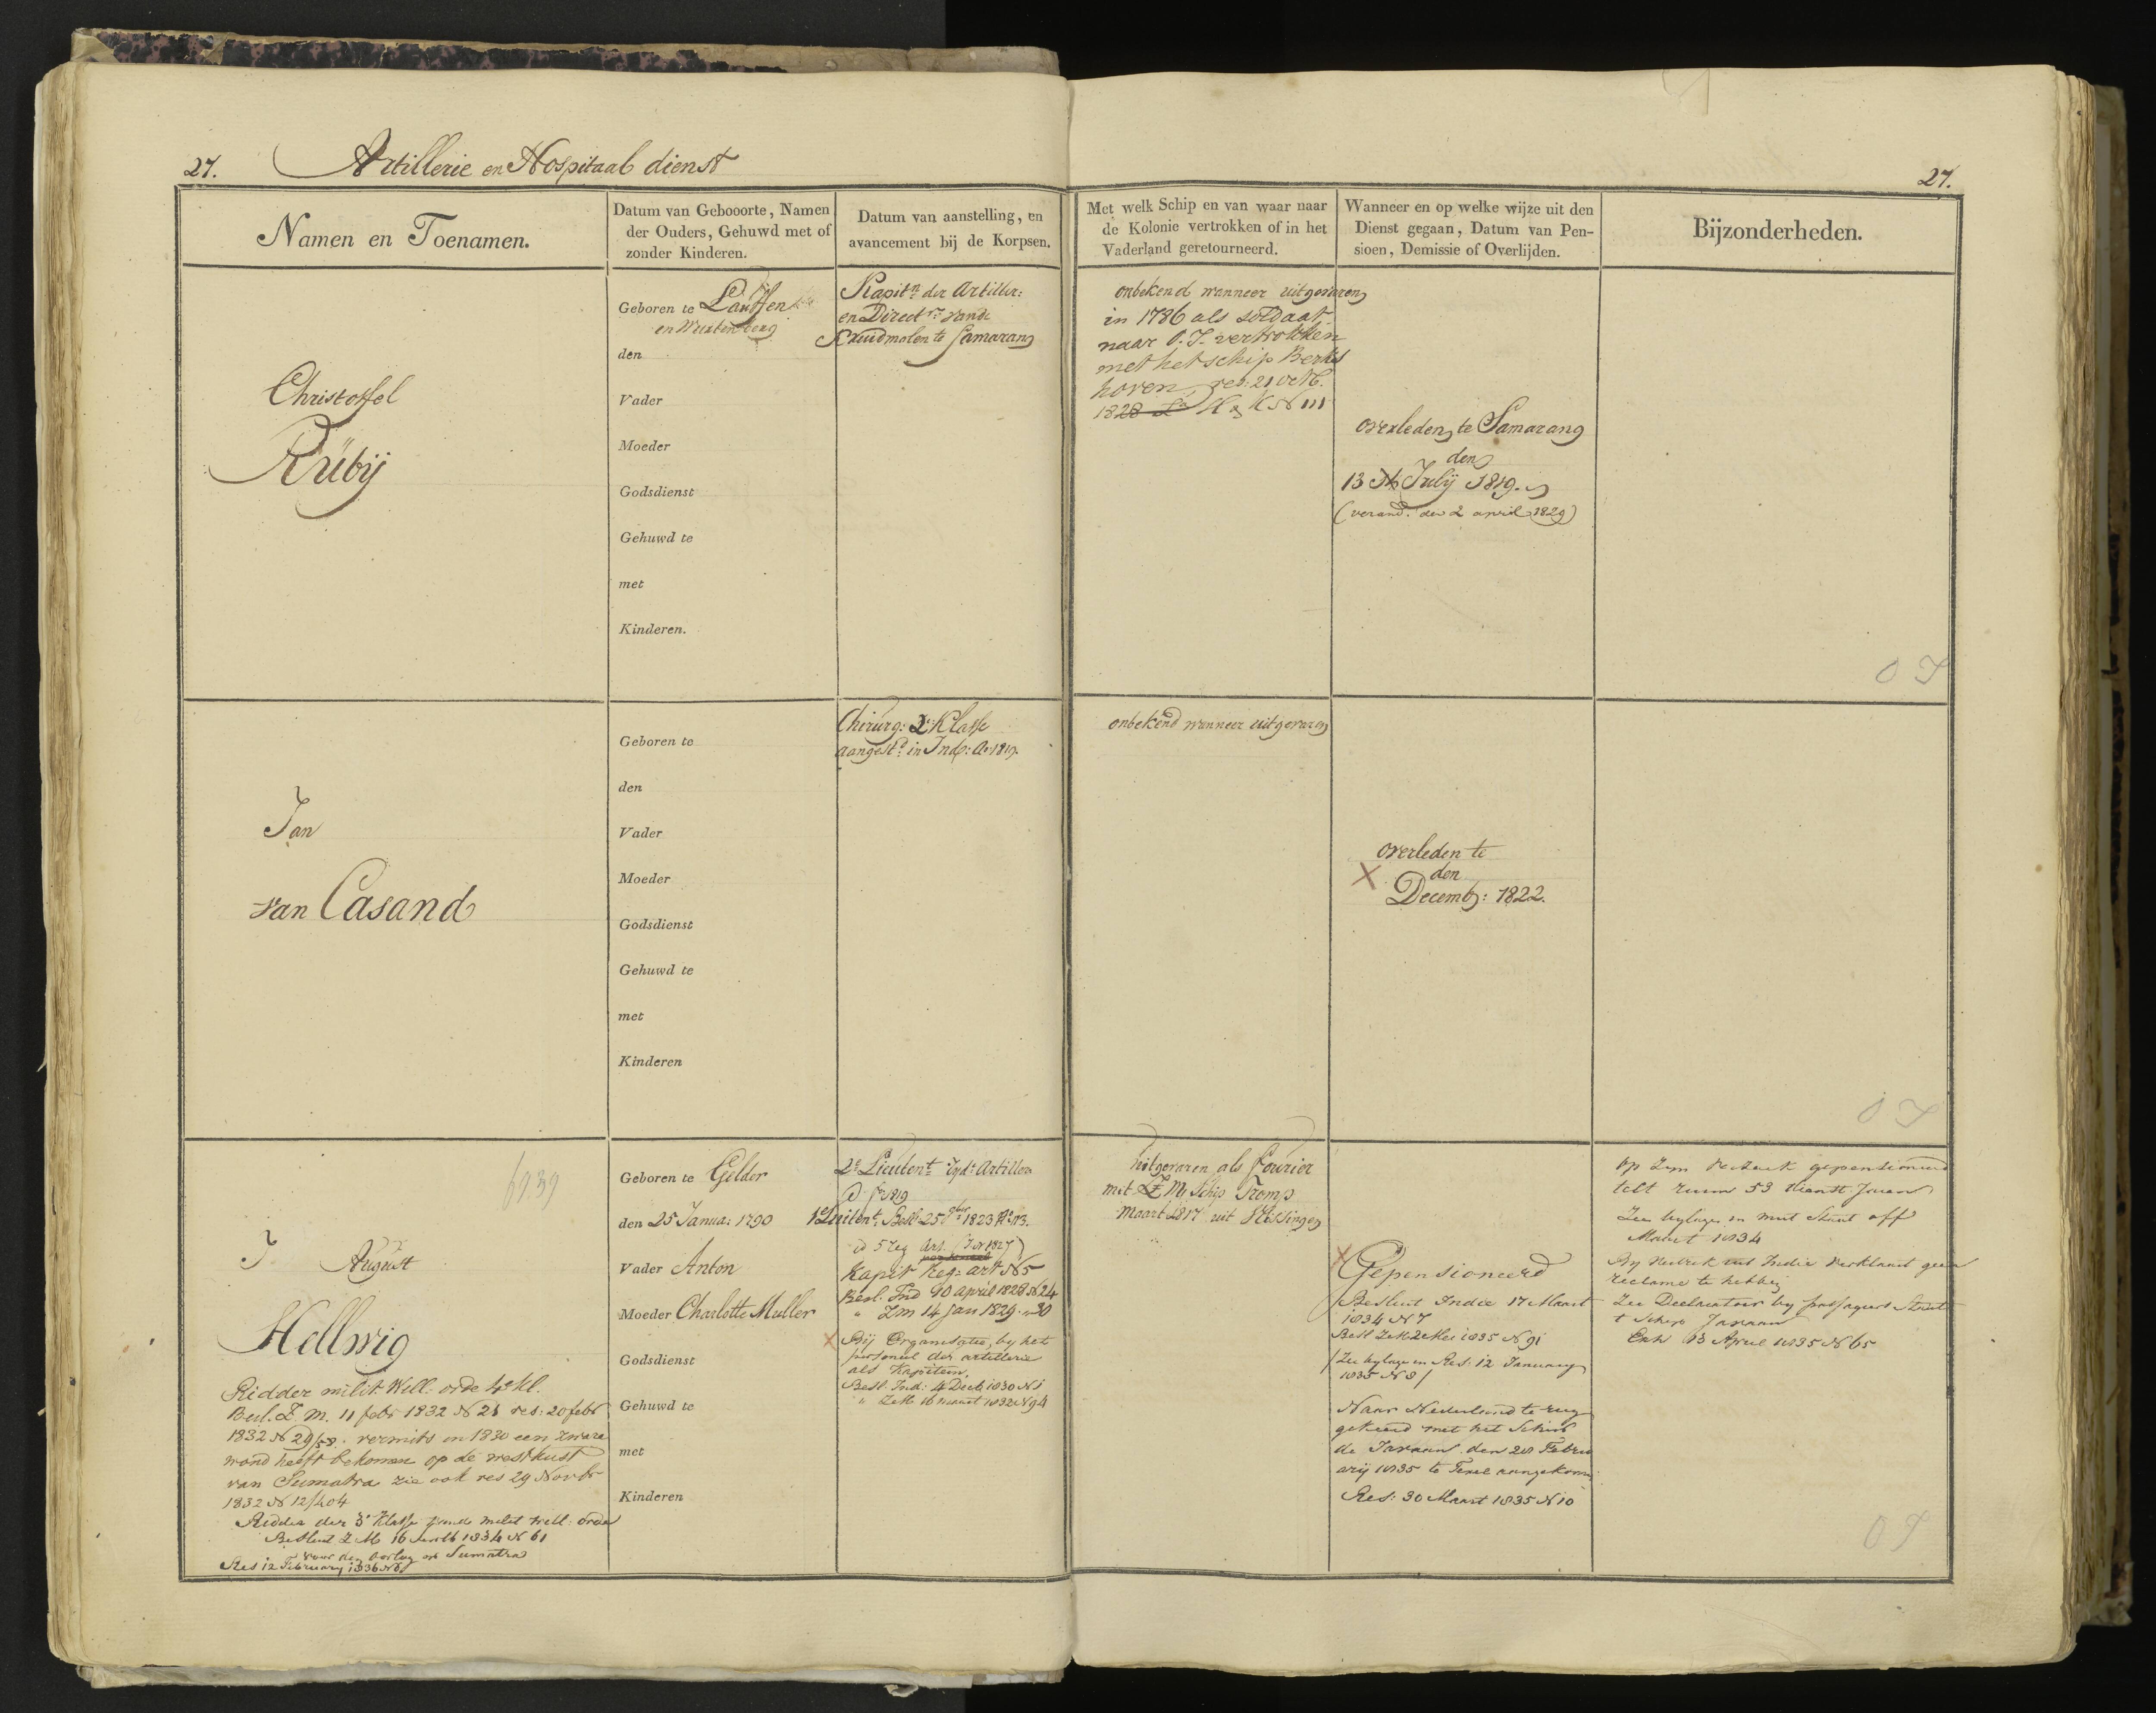 27.
Artillerie en Hospitaal dienst
27.
Namen en Toenamen.
Datum van Gebooorte, Namen
der Ouders, Gehuwd met of
zonder Kinderen.
Datum van aanstelling, en
avancement bij de Korpsen.
Met welk Schip en van waar naar
de Kolonie vertrokken of in het
Vaderland geretourneerd.
Wanneer en op welke wijze uit den
Dienst gegaan, Datum van Pen-
sioen, Demissie of Overlijden.
Bijzonderheden.
Christoffel
Rübij
Geboren te Lauffen
en Wurtemberg
den
Vader
Moeder
Godsdienst
Gehuwd te
met
Kinderen.
Kapitn der Artiller:
en Directr vande
Kruidmolen te Samarang
onbekend wanneer uitgevaren
in 1786 als soldaat
naar O.I. vertrokken
met het schip Berks
hoven, res: 21 Octb.
1828 La H & K No 111
overleden te Samarang
den
13 Julij 1819.
(verand. den 2 april 1829)
O I
Jan
van Casand
Geboren te
den
Vader
Moeder
Godsdienst
Gehuwd te
met
Kinderen
Chirurg: 2e Klasse
aangestd in Ind: Ao 1819.
onbekend wanneer uitgevaren
overleden te
den
X
Decemb: 1822.
O I
6939
J August
Hellwig
Ridder milit. Will. orde 4e kl.
Besl. Z. M. 11 febr 1832 No 21 res: 20 febr
1832 No 29/58. vermits in 1830 een zware
wond heeft bekomen op de westkust
van Sumatra zie ook res 29 Novbr
1832 No 12/404
Ridder der 3e Klasse milit Will: orde
Besluit Z M 16 1834 No 61
voor den oorlog op Sumatra
Res 12 February 1836
Geboren te Gelder
den 25 Janua: 1790
Vader Anton
Moeder Charlotte Muller
Godsdienst
Gehuwd te
met
Kinderen
2e Lieutent Artiller
1819
1e Luitent. Besl. 25 1823 No 13.
id 5 reg Art. 1827
Kapit Reg: art No 5
Besl. Ind 10 april 1828 No 24
" Z M 14 Jan 1829 No 30
X Bij Organisatie, by het
personeel der artillerie
als Kapitein
Besl. Ind: 4 Decb 1830 No 1
" Z M 16 maart 1832 No 94
Uitgevaren als fourier
met Z M Schip Tromp
Maart 1817 uit Vlissingen
X
Gepensioneerd
Besluit Indie 17 Maart
1834 No 7
Besl Z M 2 Mei 1835 No 91
/Zie bylage en Res: 12 January
1835 No 8/
Naar Nederland te rug
gekeerd met het Schip
de Javaan den 20 Febru
arij 1835 te Texel aangekom:
Res: 30 Maart 1835 No 10
op zyn verzoek gepensioneerd
telt ruim 53 dienst Jaren
Zie bylage in mut Staat off
Maart 1834
By vertrek uit Indie verklaart geen
reclame te hebben
Zie Declaratoir by passagiers Staat
t Schip Javaan
Exh 13 April 1835 No 65
O I